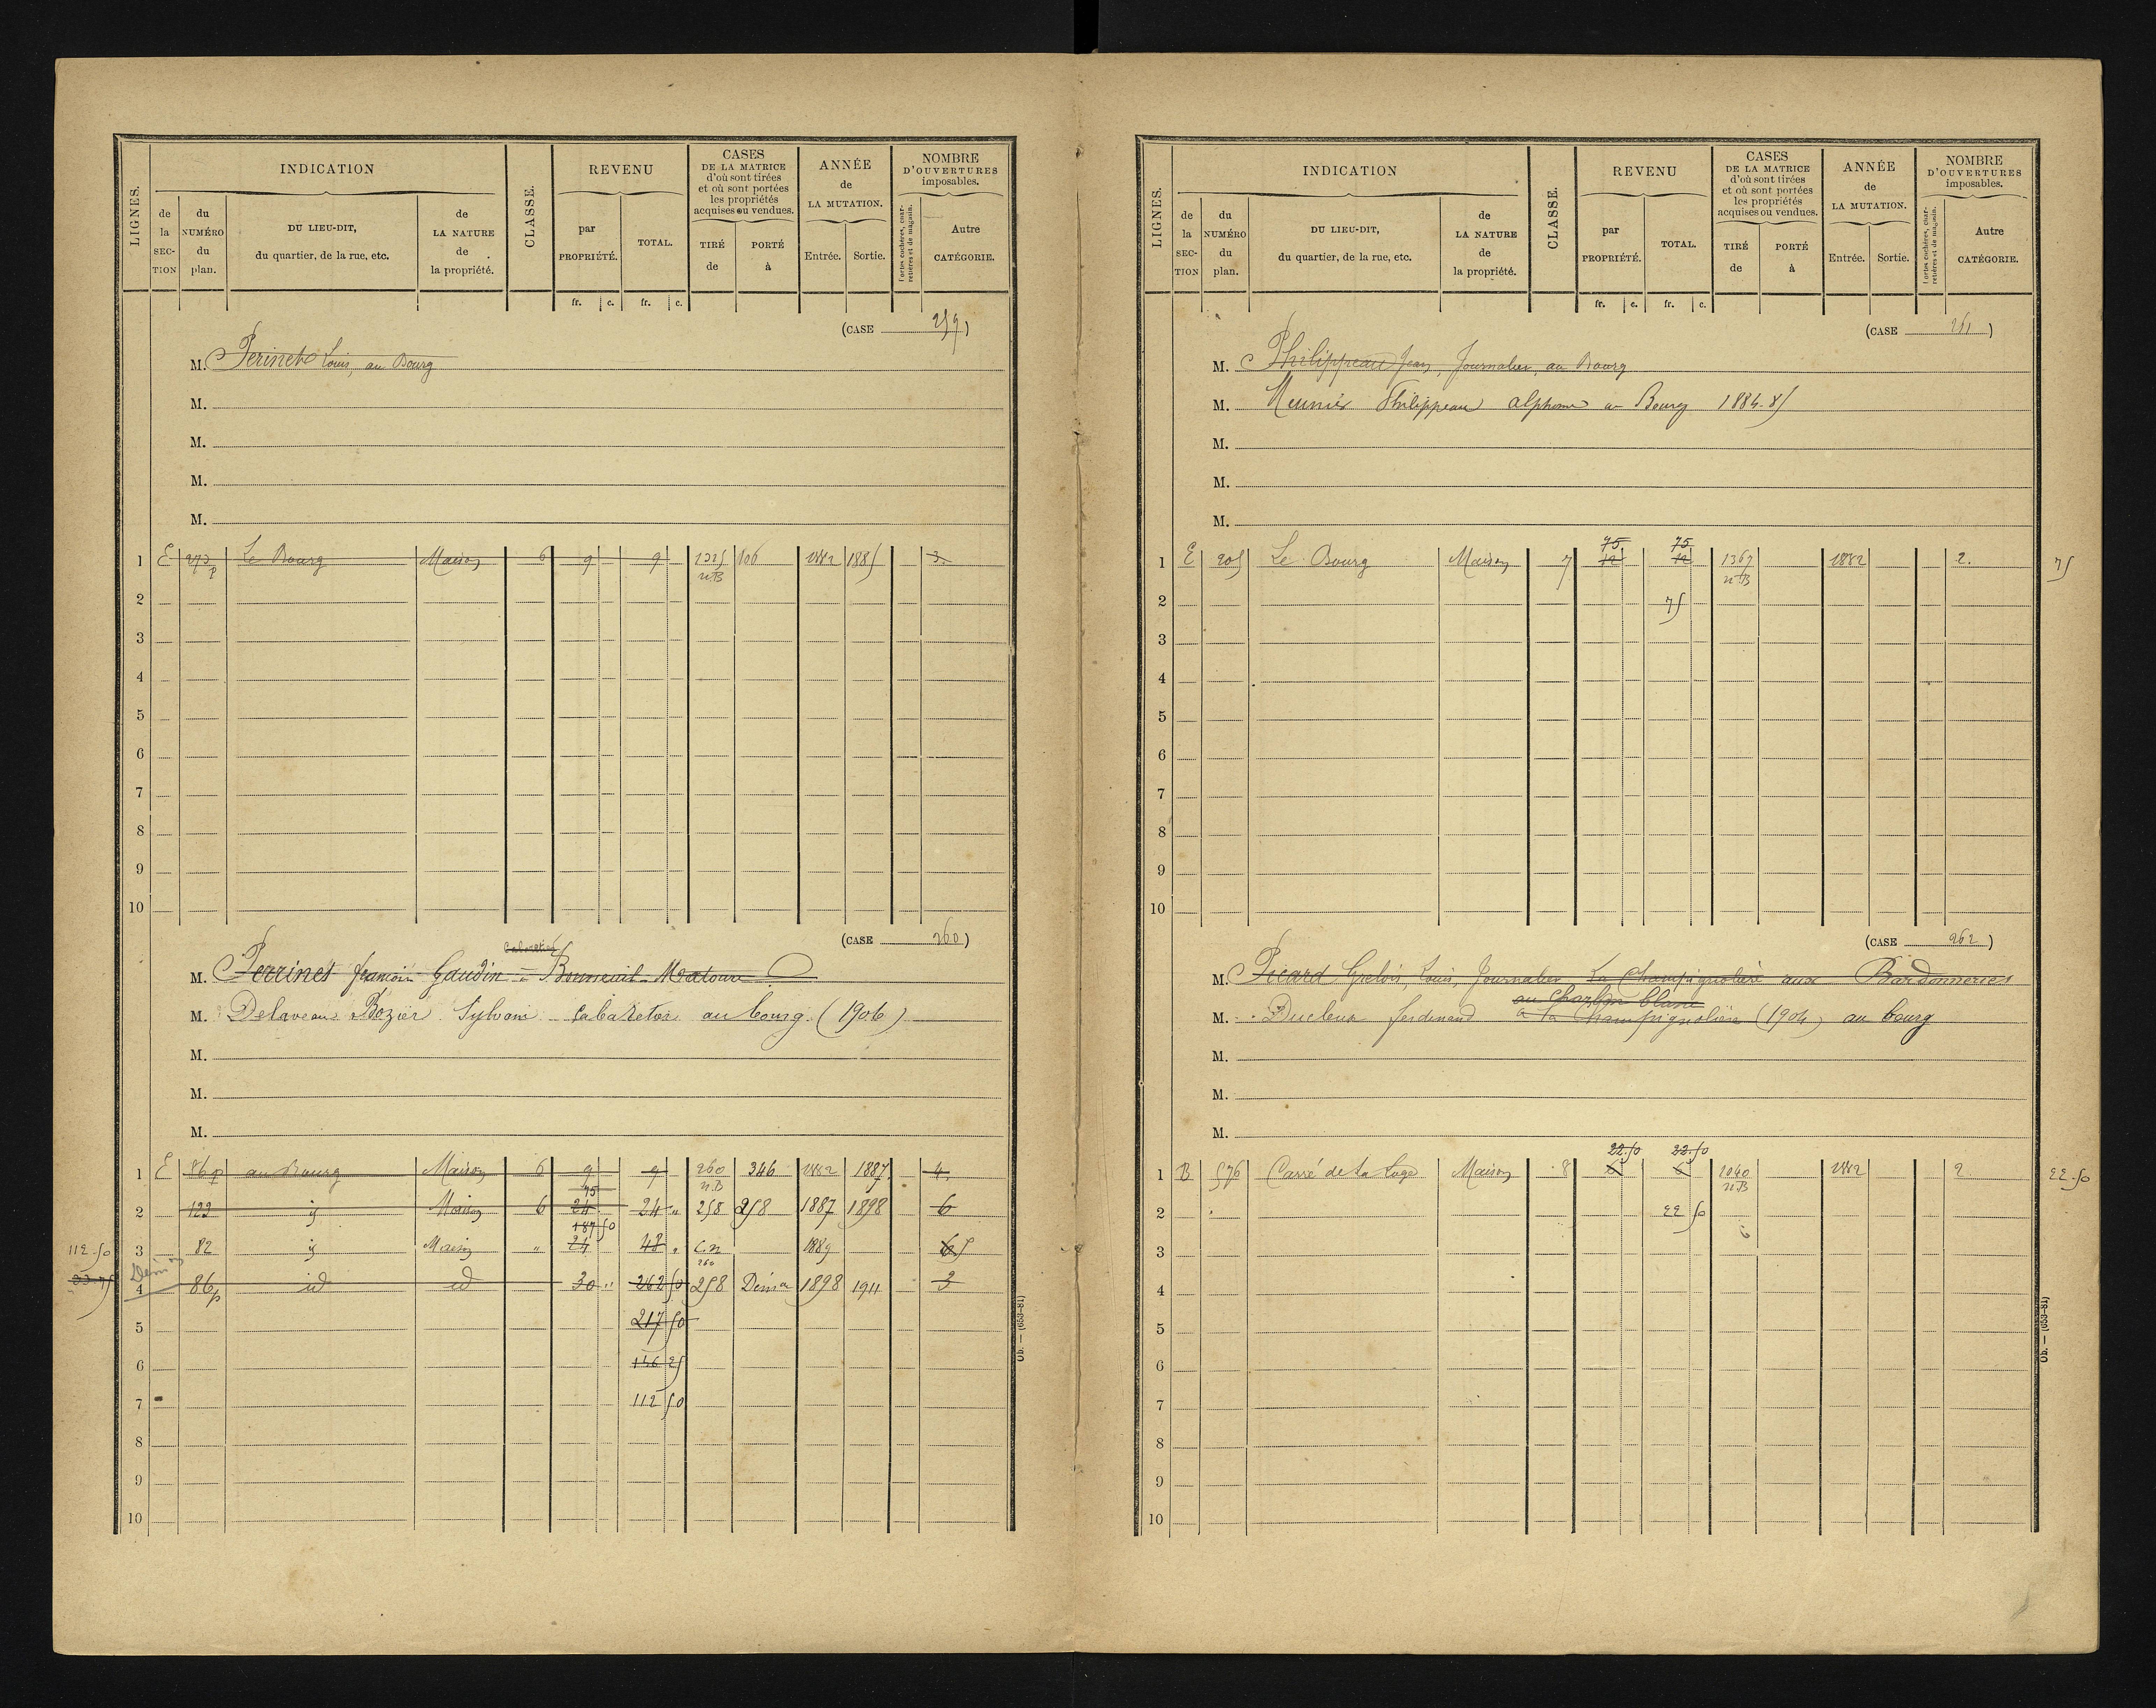 LIGNES.
INDICATION
de la SECTION
du NUMÉRO du plan.
DU LIEU-DIT, du quartier, de la rue, etc.
de LA NATURE de la propriété.
CLASSE.
REVENU
par PROPRIÉTÉ.
TOTAL.
fr. c. fr. c.
CASES DE LA MATRICE d'où sont tirées et où sont portées les propriétés acquises ou vendues.
TIRÉ de
PORTÉ à
ANNÉE de LA MUTATION.
Entrée. Sortie.
NOMBRE D'OUVERTURES imposables.
Portes cochères, charretières et de magasin.
Autre CATÉGORIE.
(CASE 259)
M. Perinet Louis, au Bourg
M.
M.
M.
M.
1 E 273p Le Bourg Maison 6 9 9 1325 106 1882 1885 3.
n.B
2
3
4
5
6
7
8
9
10
(CASE 260)
Cabaretier
M. Perrinet françois Gaudin à Bonneuil-Matours
M. Delaveau Bozier Sylvain Cabaretier au bourg (1906)
M.
M.
M.
1 E 86p au Bourg Maison 6 9 9 260 346 1882 1887 4.
n.B
75
2 122 id Maison 6 24 24 " 258 258 1887 1898 6
187.50
112.50 3 82 id Maison " 24 48 " C.n 1889 6 5
260
33.75 Démon 4 86p id id 30 " 262 50 258 Démon 1898 1911 3
5 217 50
6 146 25
7 112 50
8
9
10
LIGNES.
INDICATION
de la SECTION
du NUMÉRO du plan.
DU LIEU-DIT, du quartier, de la rue, etc.
de LA NATURE de la propriété.
CLASSE.
REVENU
par PROPRIÉTÉ.
TOTAL.
fr. c. fr. c.
CASES DE LA MATRICE d'où sont tirées et où sont portées les propriétés acquises ou vendues.
TIRÉ de
PORTÉ à
ANNÉE de LA MUTATION.
Entrée. Sortie.
NOMBRE D'OUVERTURES imposables.
Portes cochères, charretières et de magasin.
Autre CATÉGORIE.
(CASE 261)
M. Philippeau Jean, Journalier, au Bourg
M. Meunier Philippeau alphonse au Bourg 1884-85
M.
M.
M.
75 75
1 E 205 Le Bourg Maison 7 12 12 1367 1882 2. 75
n.B
2 75
3
4
5
6
7
8
9
10
(CASE 262)
M. Picard Grelois, Louis, Journalier La Champignolière aux Bardonneries
au Charlin blanc
M. Ducleux ferdinand à la Champignolière (1904) au bourg
M.
M.
M.
22.50 22.50
1 B 576 Carré de la Loge Maison 8 6 6 1040 1882 2. 22.50
n.B
2 22 50
3
4
5
6
7
8
9
10
Ob. — (653-81)
Ob. — (653-81)